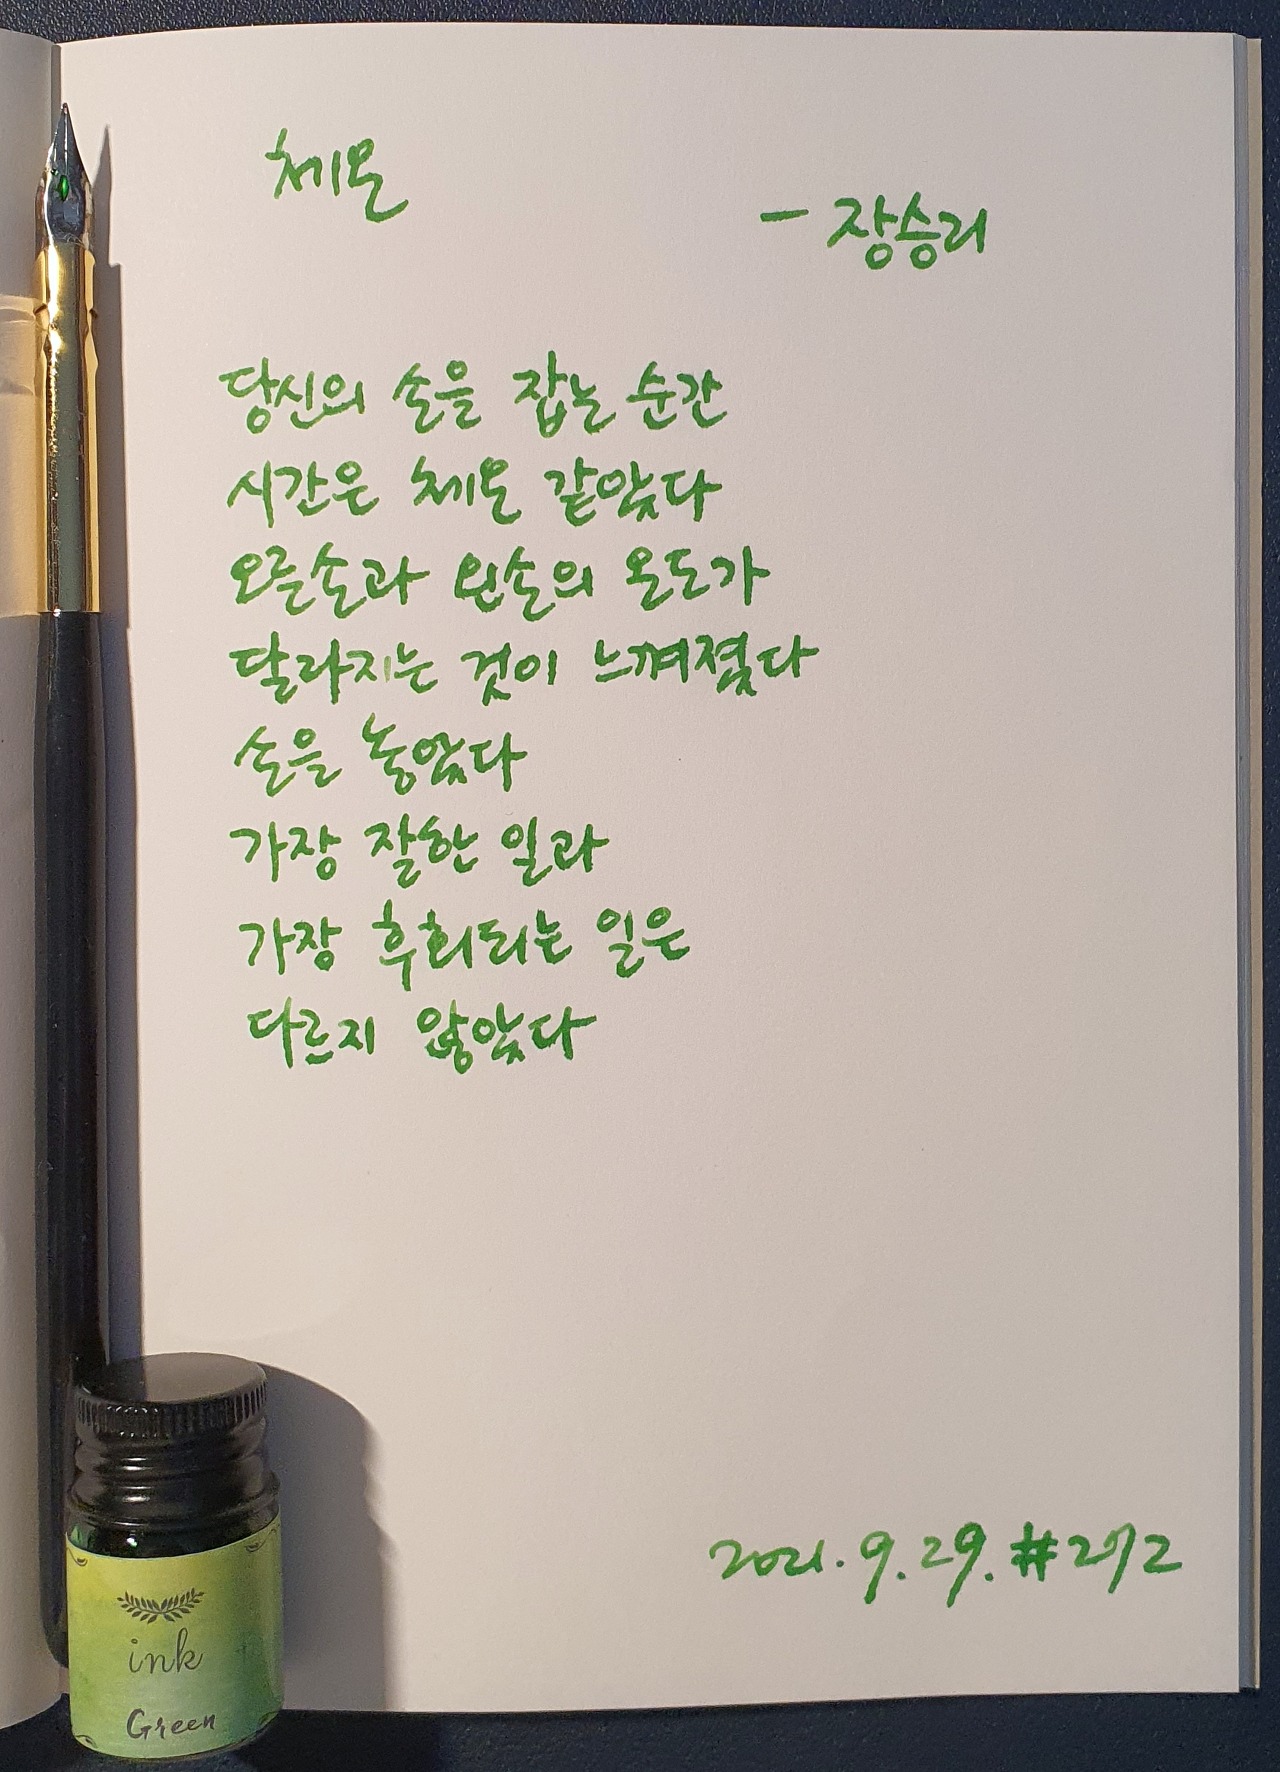 체온
- 장승리
당신의 손을 잡는 순간
시간은 체온 같았다
오른손과 왼손의 온도가
달라지는 것이 느껴졌다
손을 놓았다
가장 잘한 일과
가장 후회되는 일은
다르지 않았다
2021. 9. 29. #272
ink
Green